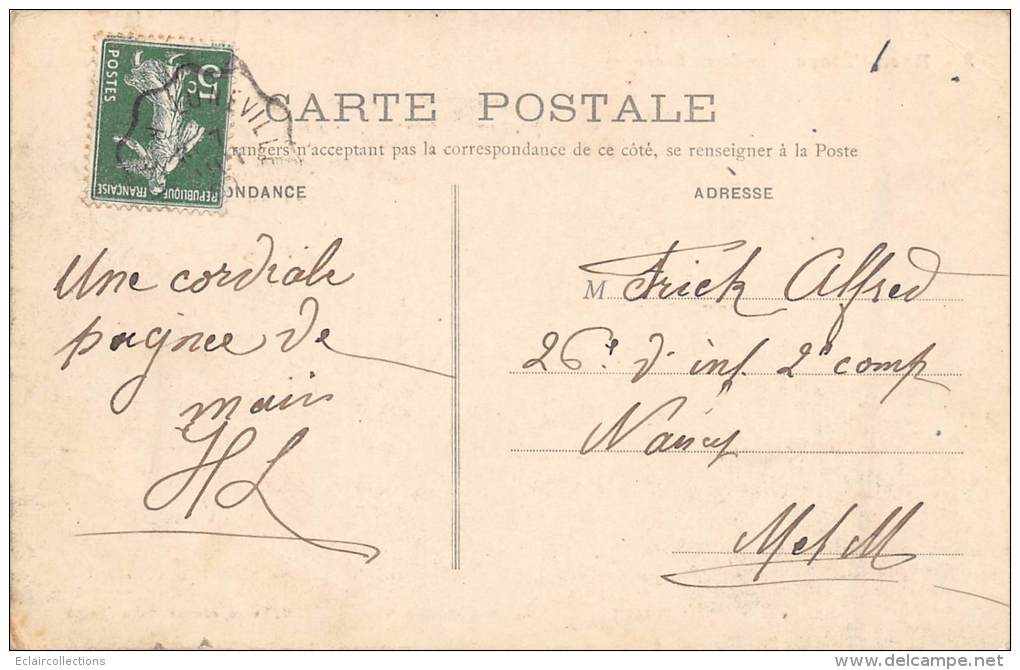 5c
POSTES
REPUBLIQUE FRANÇAISE
CARTE POSTALE
rangers n'acceptant pas la correspondance de ce côté, se renseigner à la Poste
ONDANCE
ADRESSE
Une cordiale
poignee de
main
HL
M Frick Alfred
26e d' inf 2e comp
Nancy
M et M
Eclaircollections
http://www.delcampe.net